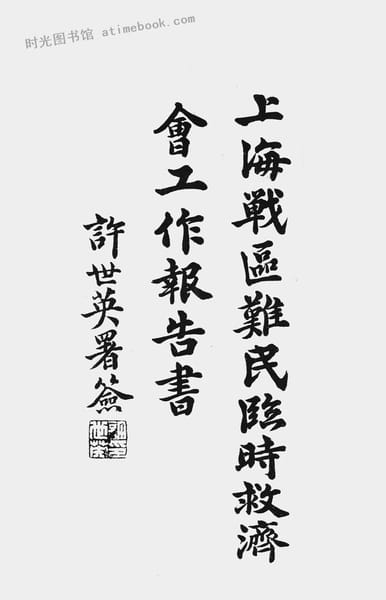 时光图书馆 atimebook.com
上海戰區難民臨時救濟
會工作報告書
許世英署簽